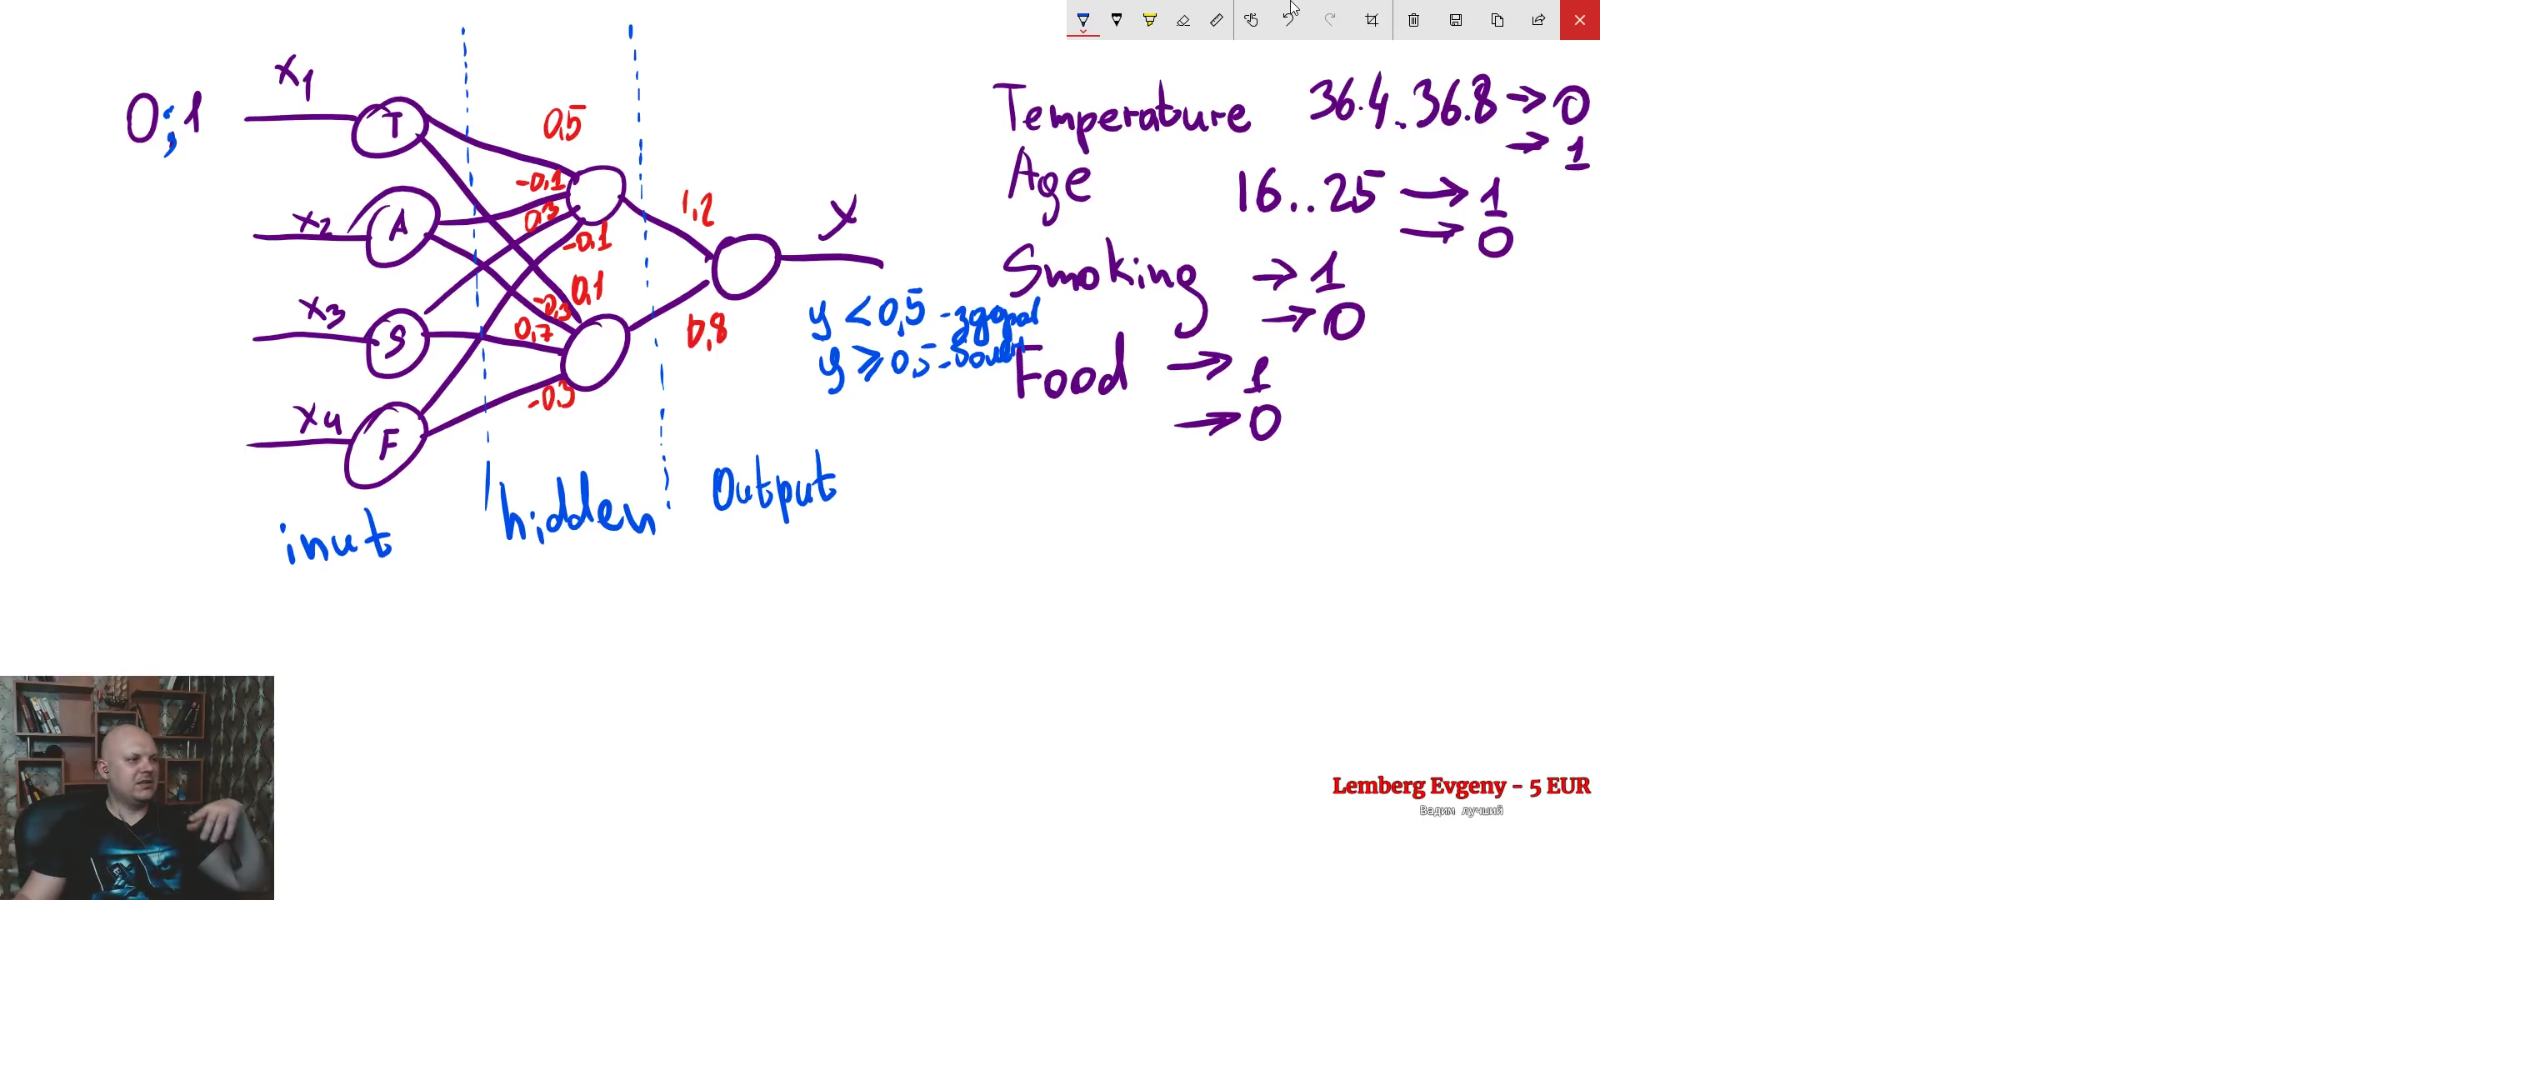 0;1
x1
T
0,5
-0,1
x2
A
0,3
-0,1
x3
S
0,1
-0,3
0,7
x4
F
-0,5
1,2
0,8
y
y < 0,5 - здоров
y ⩾ 0,5 - болен
inut
hidden
Output
Temperature 36.4..36.8 → 0
→ 1
Age 16..25 → 1
→ 0
Smoking → 1
→ 0
Food → 1
→ 0
Lemberg Evgeny - 5 EUR
Вадим лучший